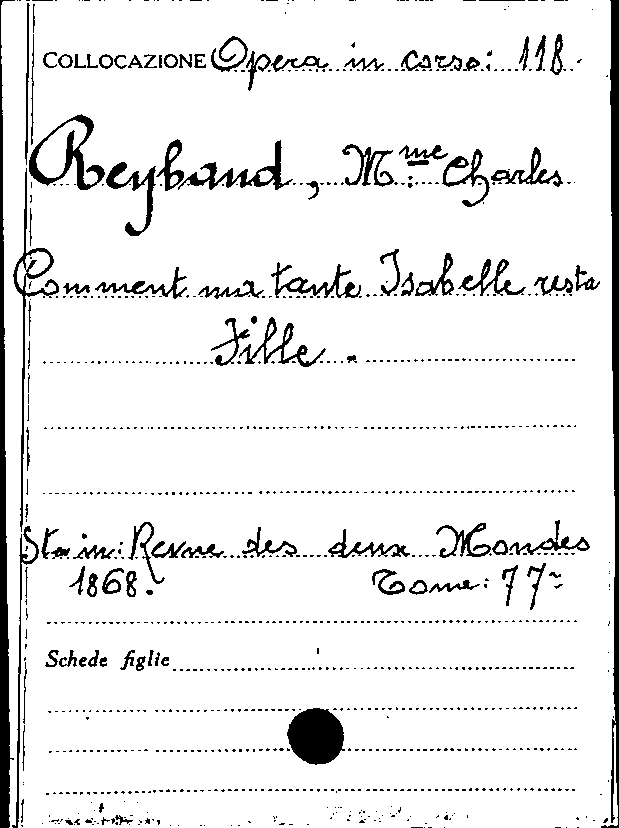 COLLOCAZIONE Opera in corso: 118.
Reybaud, Mme Charles
Comment ma tante Isabelle resta
Fille.
Sta in: Revue des deux Mondes
1868. Tome: 77
Schede figlie